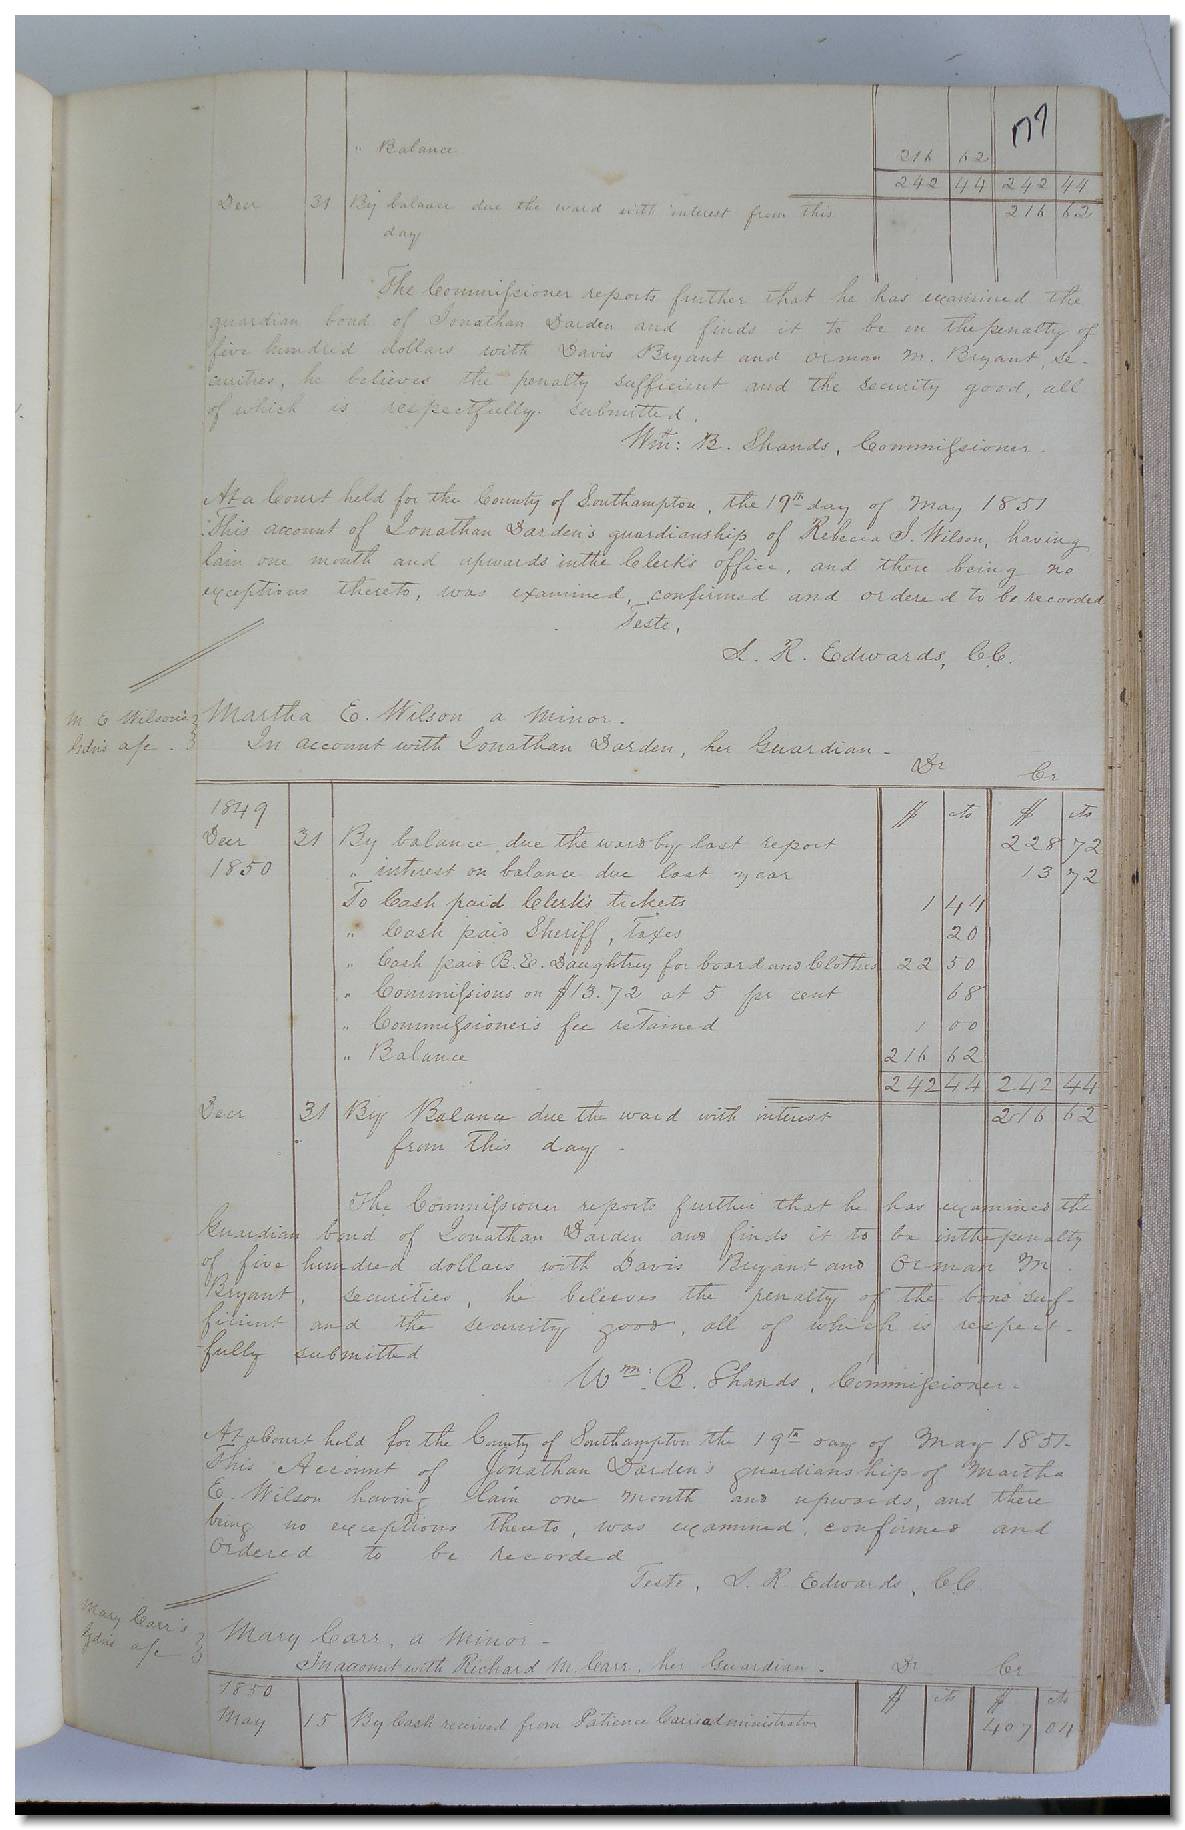 177
" Balance 216 62
242 44 242 44
Decr 31 By balance due the ward with interest from this 216 62
day
The Commissioner reports further that he has examined the
guardian bond of Jonathan Darden and finds it to be in the penalty of
five hundred dollars with Davis Bryant and Orman M. Bryant, se-
curities, he believes the penalty sufficient and the security good, all
of which is respectfully submitted.
Wm: B. Shands, Commissioner.
At a Court held for the County of Southampton, the 19th day of May 1851
This account of Jonathan Darden's guardianship of Rebecca J. Wilson, having
lain one month and upwards in the Clerk's office, and there being no
exceptions thereto, was examined, confirmed and ordered to be recorded
Teste,
L. R. Edwards, C.C.
M E Wilson's
Gdn's a/c
Martha E. Wilson a minor.
In account with Jonathan Darden, her Guardian -
Dr Cr
1849 $ cts $ cts
Decr 31 By balance due the ward by last report 228 72
1850 " interest on balance due last year 13 72
To Cash paid Clerk's tickets 1 44
" Cash paid Sheriff, Taxes 20
" Cash paid B. E. Daughtrey for board and Clothes 22 50
" Commissions on $13.72 at 5 pr cent 68
" Commissioner's fee retained 1 00
" Balance 216 62
242 44 242 44
Decr 31 By Balance due the ward with interest 216 62
from this day -
The Commissioner reports further that he has examined the
Guardian bond of Jonathan Darden and finds it to be in the penalty
of five hundred dollars with Davis Bryant and Orman M.
Bryant, securities, he believes the penalty of the bond suf-
ficient and the security good, all of which is respect-
fully submitted
Wm: B. Shands, Commissioner -
At a Court held for the County of Southampton the 19th day of May 1851-
This Account of Jonathan Darden's guardianship of Martha
E. Wilson having lain one month and upwards, and there
being no exceptions thereto, was examined, confirmed and
ordered to be recorded
Teste, L. R. Edwards, C.C.
Mary Carr's
Gdn's a/c
Mary Carr, a minor -
In account with Richard M. Carr, her Guardian - Dr Cr
1850 $ cts $ cts
May 15 By Cash received from Patience Carr administrator 407 04